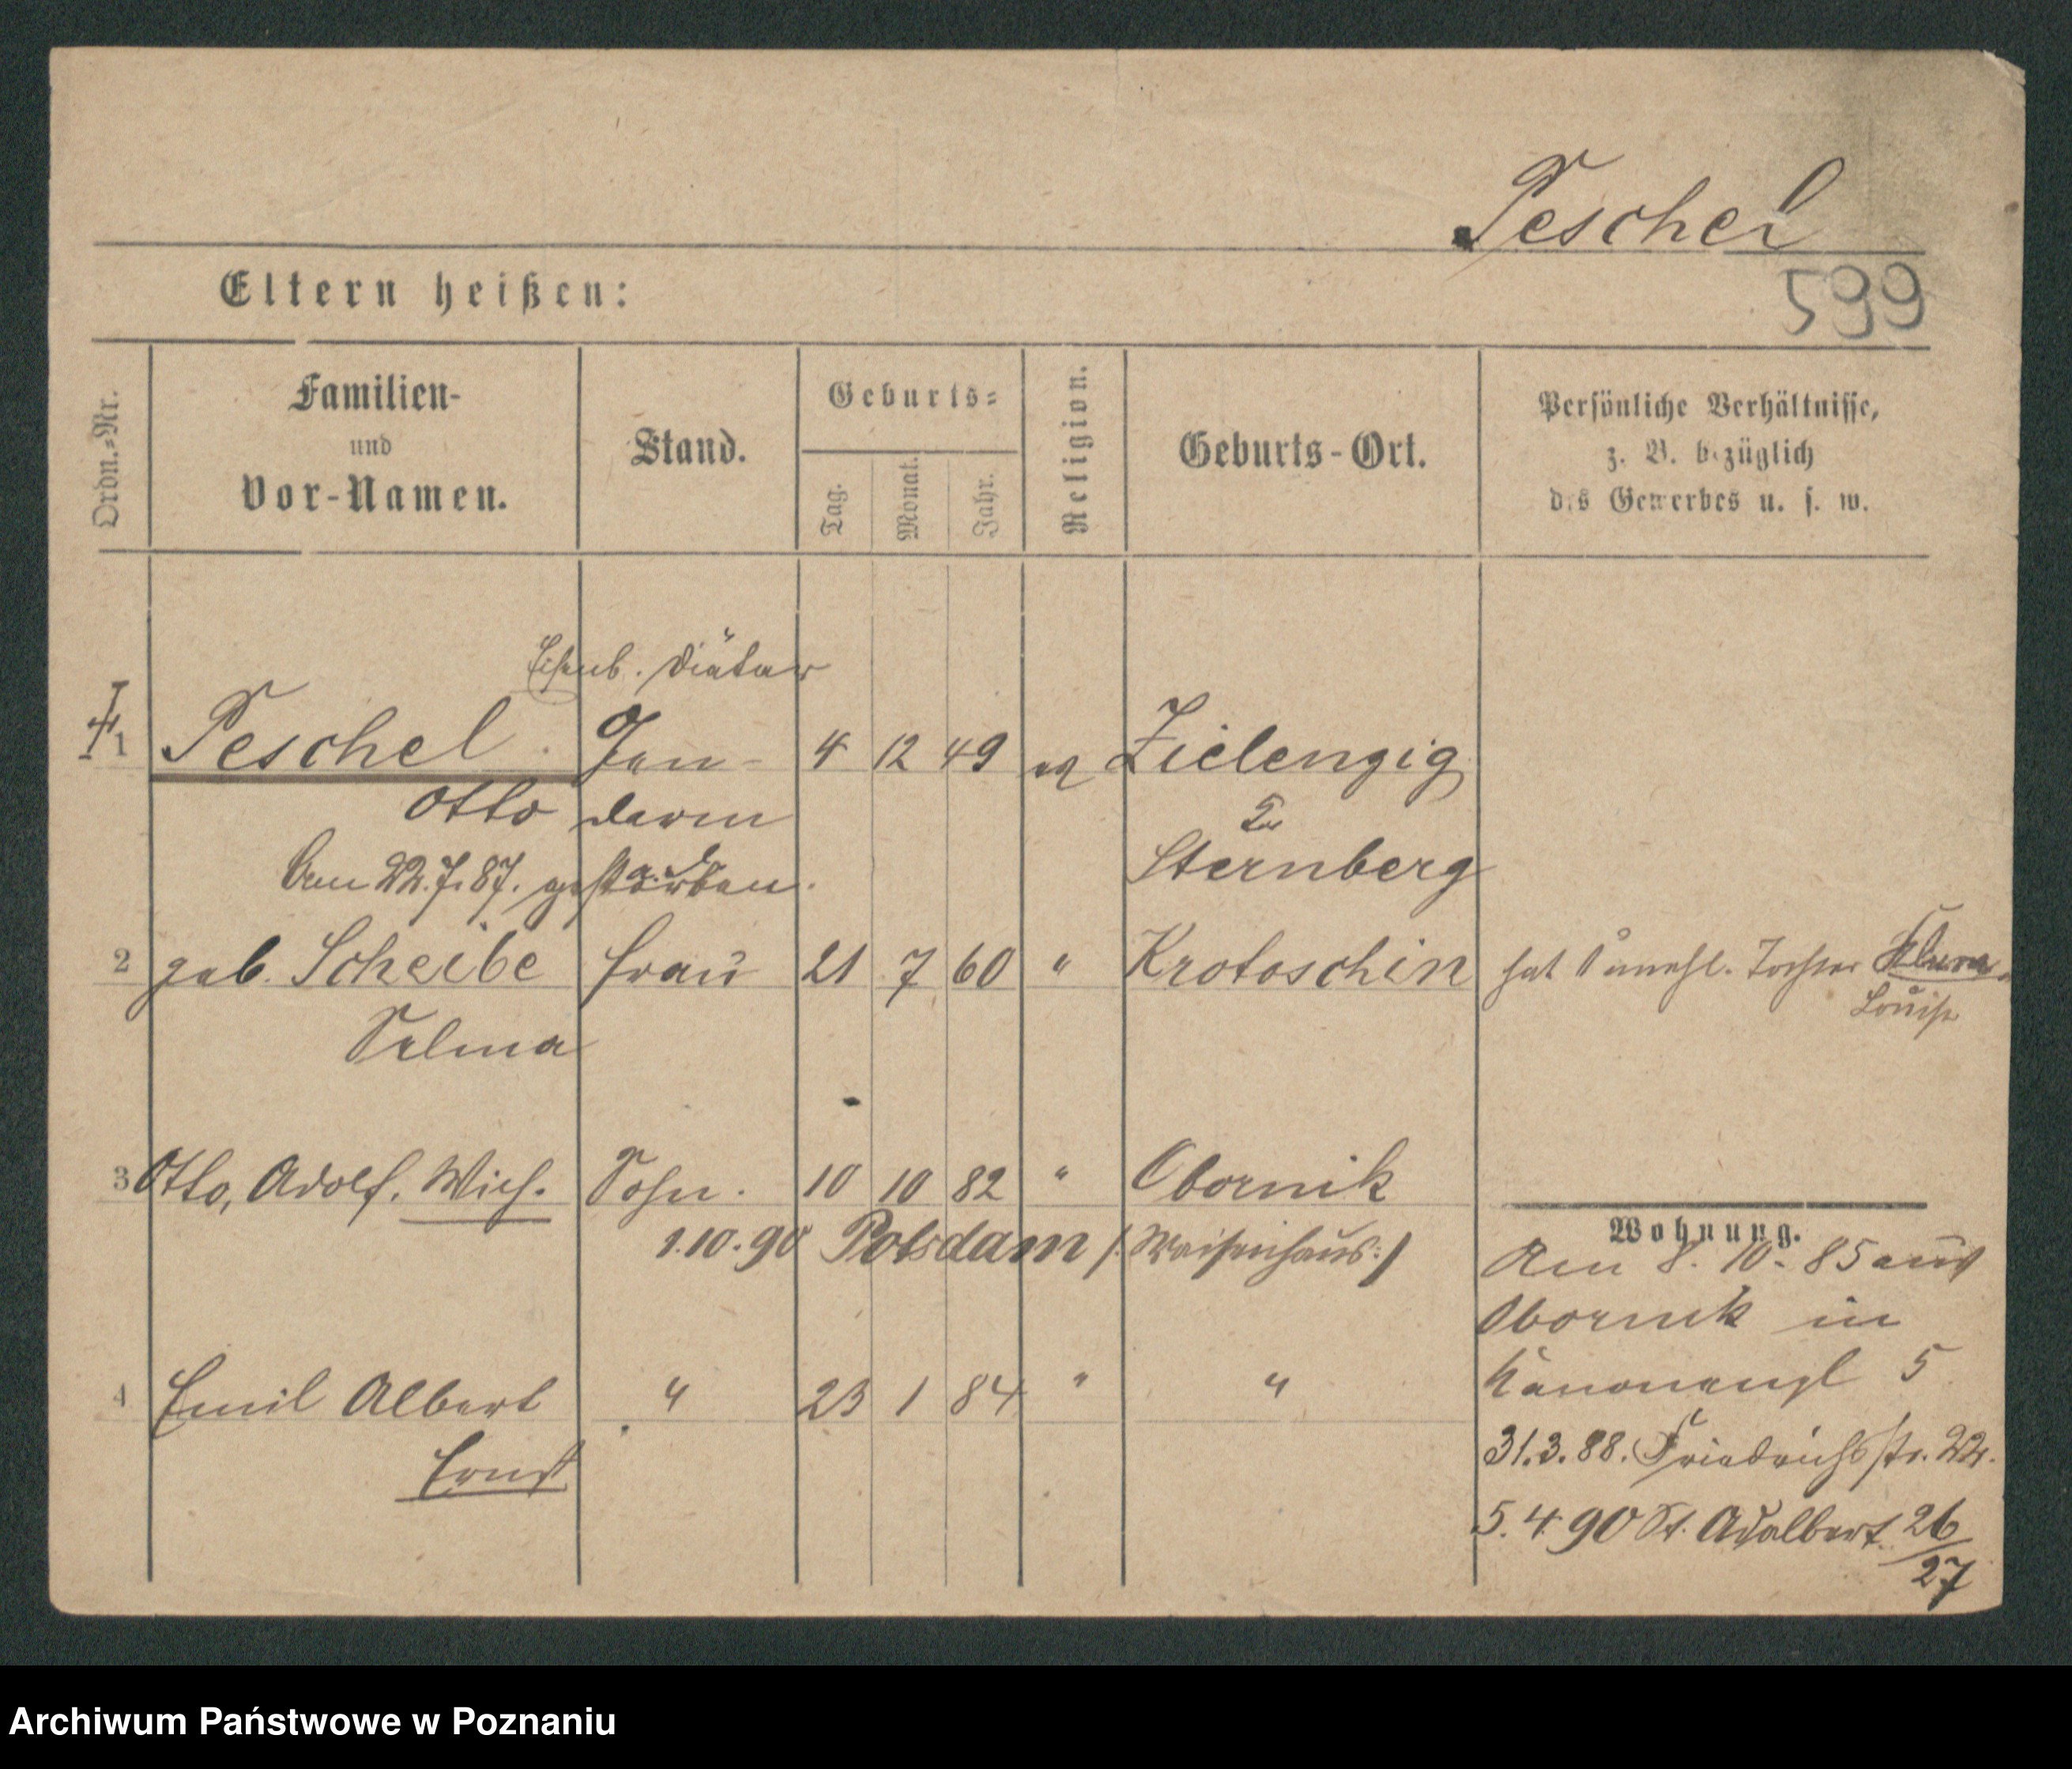 Peschel
599
Eltern heißen:
Ordn.=Nr.
Familien-
und
Vor-Namen.
Stand.
Geburts=
Tag.
Monat.
Jahr.
Religion.
Geburts-Ort.
Persönliche Verhältnisse,
z. B. bezüglich
des Gewerbes u. s. w.
Eisenb. Diätar
1 Peschel Gen- 4 12 49 ev Zielenzig
Otto darm
Sternberg
Am 22.7.87. gestorben.
2 geb. Scheibe Frau 21 7 60 " Krotoschin hat 1 unehl. Tochter
Louise
Selma
3 Otto, Adolf, Wilh. Sohn. 10 10 82 " Obornik
1.10.90 Potsdam /:Waisenhaus:/
Wohnung.
Am 8. 10. 85 aus
Obornik in
Kanonenpl 5
4 Emil Albert " 23 1 84 " "
Ernst
31.3.88. Friedrichsstr. 22.
5. 4 90 St. Adalbert. 26/27
Archiwum Państwowe w Poznaniu